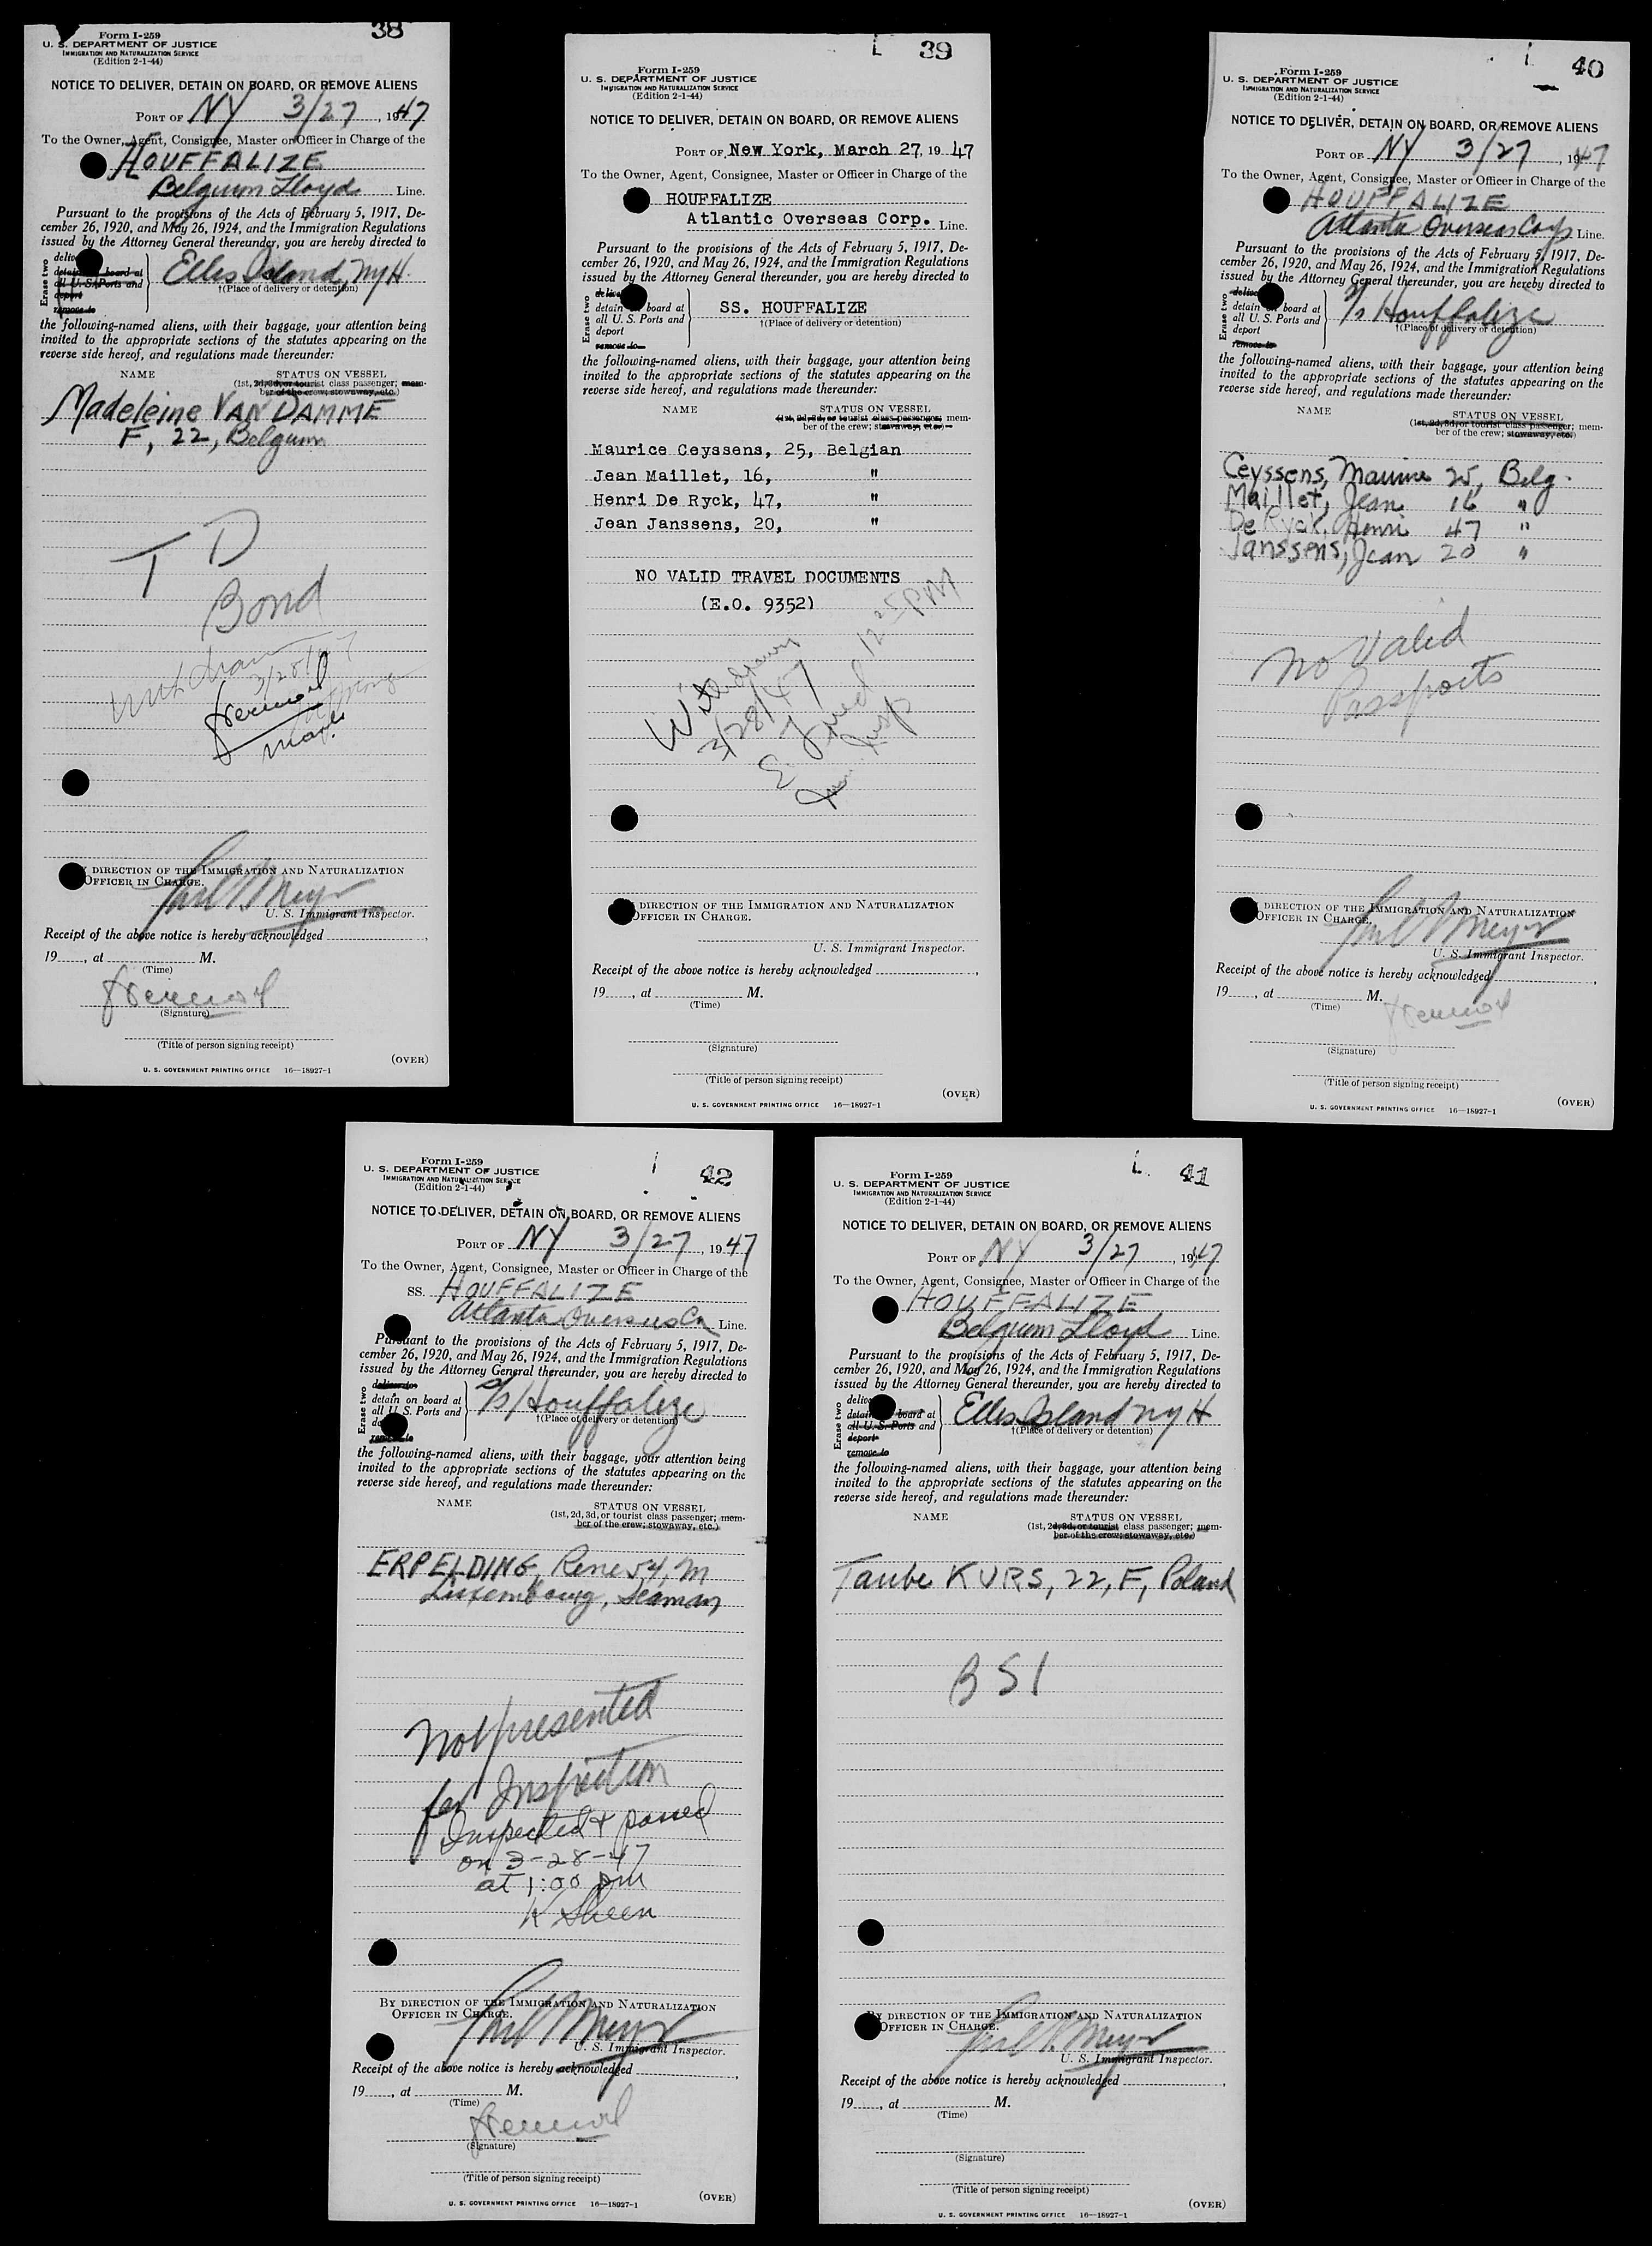 38
Form I-259
U. S. DEPARTMENT OF JUSTICE
IMMIGRATION AND NATURALIZATION SERVICE
(Edition 2-1-44)
NOTICE TO DELIVER, DETAIN ON BOARD, OR REMOVE ALIENS
PORT OF NY 3/27, 1947
To the Owner, Agent, Consignee, Master or Officer in Charge of the
HOUFFALIZE
Belgium Lloyd Line.
Pursuant to the provisions of the Acts of February 5, 1917, De-
cember 26, 1920, and May 26, 1924, and the Immigration Regulations
issued by the Attorney General thereunder, you are hereby directed to
Erase two
delive
detain on board at
all U. S. Ports and
deport
remove to
Ellis Island, NYH.
†(Place of delivery or detention)
the following-named aliens, with their baggage, your attention being
invited to the appropriate sections of the statutes appearing on the
reverse side hereof, and regulations made thereunder:
NAME STATUS ON VESSEL
(1st, 2d, 3d, or tourist class passenger; mem-
ber of the crew; stowaway, etc.)
Madeleine VAN DAMME
F, 22, Belgium
T D
Bond
Withdrawn
3/28/47
DIRECTION OF THE IMMIGRATION AND NATURALIZATION
OFFICER IN CHARGE.
U. S. Immigrant Inspector.
Receipt of the above notice is hereby acknowledged
19, at M.
(Time)
(Signature)
(Title of person signing receipt)
(OVER)
U. S. GOVERNMENT PRINTING OFFICE 16—18927-1
L 39
Form I-259
U. S. DEPARTMENT OF JUSTICE
IMMIGRATION AND NATURALIZATION SERVICE
(Edition 2-1-44)
NOTICE TO DELIVER, DETAIN ON BOARD, OR REMOVE ALIENS
PORT OF New York, March 27, 1947
To the Owner, Agent, Consignee, Master or Officer in Charge of the
HOUFFALIZE
Atlantic Overseas Corp. Line.
Pursuant to the provisions of the Acts of February 5, 1917, De-
cember 26, 1920, and May 26, 1924, and the Immigration Regulations
issued by the Attorney General thereunder, you are hereby directed to
Erase two
delive
detain on board at
all U. S. Ports and
deport
remove to
SS. HOUFFALIZE
†(Place of delivery or detention)
the following-named aliens, with their baggage, your attention being
invited to the appropriate sections of the statutes appearing on the
reverse side hereof, and regulations made thereunder:
NAME STATUS ON VESSEL
(1st, 2d, 3d, or tourist class passenger; mem-
ber of the crew; stowaway, etc.)
Maurice Ceyssens, 25, Belgian
Jean Maillet, 16, "
Henri De Ryck, 47, "
Jean Janssens, 20, "
NO VALID TRAVEL DOCUMENTS
(E.O. 9352)
Withdrawn
3/28/47 12 25 PM
Imm. Insp
DIRECTION OF THE IMMIGRATION AND NATURALIZATION
OFFICER IN CHARGE.
U. S. Immigrant Inspector.
Receipt of the above notice is hereby acknowledged
19, at M.
(Time)
(Signature)
(Title of person signing receipt)
(OVER)
U. S. GOVERNMENT PRINTING OFFICE 16—18927-1
40
Form I-259
U. S. DEPARTMENT OF JUSTICE
IMMIGRATION AND NATURALIZATION SERVICE
(Edition 2-1-44)
NOTICE TO DELIVER, DETAIN ON BOARD, OR REMOVE ALIENS
PORT OF NY 3/27, 1947
To the Owner, Agent, Consignee, Master or Officer in Charge of the
HOUFFALIZE
Atlanta Overseas Corp Line.
Pursuant to the provisions of the Acts of February 5, 1917, De-
cember 26, 1920, and May 26, 1924, and the Immigration Regulations
issued by the Attorney General thereunder, you are hereby directed to
Erase two
delive
detain on board at
all U. S. Ports and
deport
remove to
S/S Houffalize
†(Place of delivery or detention)
the following-named aliens, with their baggage, your attention being
invited to the appropriate sections of the statutes appearing on the
reverse side hereof, and regulations made thereunder:
NAME STATUS ON VESSEL
(1st, 2d, 3d, or tourist class passenger; mem-
ber of the crew; stowaway, etc.)
Ceyssens, Maurice 25, Belg.
Maillet, Jean 16 "
De Ryck, Henri 47 "
Janssens, Jean 20 "
No Valid
Passports
DIRECTION OF THE IMMIGRATION AND NATURALIZATION
OFFICER IN CHARGE.
U. S. Immigrant Inspector.
Receipt of the above notice is hereby acknowledged
19, at M.
(Time)
(Signature)
(Title of person signing receipt)
(OVER)
U. S. GOVERNMENT PRINTING OFFICE 16—18927-1
42
Form I-259
U. S. DEPARTMENT OF JUSTICE
IMMIGRATION AND NATURALIZATION SERVICE
(Edition 2-1-44)
NOTICE TO DELIVER, DETAIN ON BOARD, OR REMOVE ALIENS
PORT OF NY 3/27, 1947
To the Owner, Agent, Consignee, Master or Officer in Charge of the
SS. HOUFFALIZE
Atlanta Overseas Co Line.
Pursuant to the provisions of the Acts of February 5, 1917, De-
cember 26, 1920, and May 26, 1924, and the Immigration Regulations
issued by the Attorney General thereunder, you are hereby directed to
Erase two
deliver to
detain on board at
all U. S. Ports and
de
remove to
S/S Houffalize
†(Place of delivery or detention)
the following-named aliens, with their baggage, your attention being
invited to the appropriate sections of the statutes appearing on the
reverse side hereof, and regulations made thereunder:
NAME STATUS ON VESSEL
(1st, 2d, 3d, or tourist class passenger; mem-
ber of the crew; stowaway, etc.)
ERPELDING, Rene 54, M
Luxembourg, Seaman
Not presented
for Inspection
Inspected & passed
on 3-28-47
at 1:00 pm
K Sheen
BY DIRECTION OF THE IMMIGRATION AND NATURALIZATION
OFFICER IN CHARGE.
U. S. Immigrant Inspector.
Receipt of the above notice is hereby acknowledged
19, at M.
(Time)
(Signature)
(Title of person signing receipt)
(OVER)
U. S. GOVERNMENT PRINTING OFFICE 16—18927-1
L. 41
Form I-259
U. S. DEPARTMENT OF JUSTICE
IMMIGRATION AND NATURALIZATION SERVICE
(Edition 2-1-44)
NOTICE TO DELIVER, DETAIN ON BOARD, OR REMOVE ALIENS
PORT OF NY 3/27, 1947
To the Owner, Agent, Consignee, Master or Officer in Charge of the
HOUFFALIZE
Belgium Lloyd Line.
Pursuant to the provisions of the Acts of February 5, 1917, De-
cember 26, 1920, and May 26, 1924, and the Immigration Regulations
issued by the Attorney General thereunder, you are hereby directed to
Erase two
delive
detain on board at
all U. S. Ports and
deport
remove to
Ellis Island NYH
†(Place of delivery or detention)
the following-named aliens, with their baggage, your attention being
invited to the appropriate sections of the statutes appearing on the
reverse side hereof, and regulations made thereunder:
NAME STATUS ON VESSEL
(1st, 2d, 3d, or tourist class passenger; mem-
ber of the crew; stowaway, etc.)
Taube KURS, 22, F, Poland
BSI
BY DIRECTION OF THE IMMIGRATION AND NATURALIZATION
OFFICER IN CHARGE.
U. S. Immigrant Inspector.
Receipt of the above notice is hereby acknowledged
19, at M.
(Time)
(Signature)
(Title of person signing receipt)
(OVER)
U. S. GOVERNMENT PRINTING OFFICE 16—18927-1